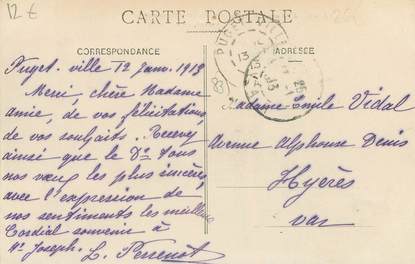 12 €
CARTE POSTALE
CORRESPONDANCE
ADRESSE
Puget-ville 12 Janv. 1913
Merci, chère Madame
amie, de vos félicitations,
de vos souhaits. Recevez
ainsi que le Dr tous
nos vœux les plus sincères,
avec l'expression de
nos sentiments les meilleurs
Cordial souvenir à
Mr Joseph. L.
Madame Emile Vidal
Avenue Alphonse Denis
Hyères
Var